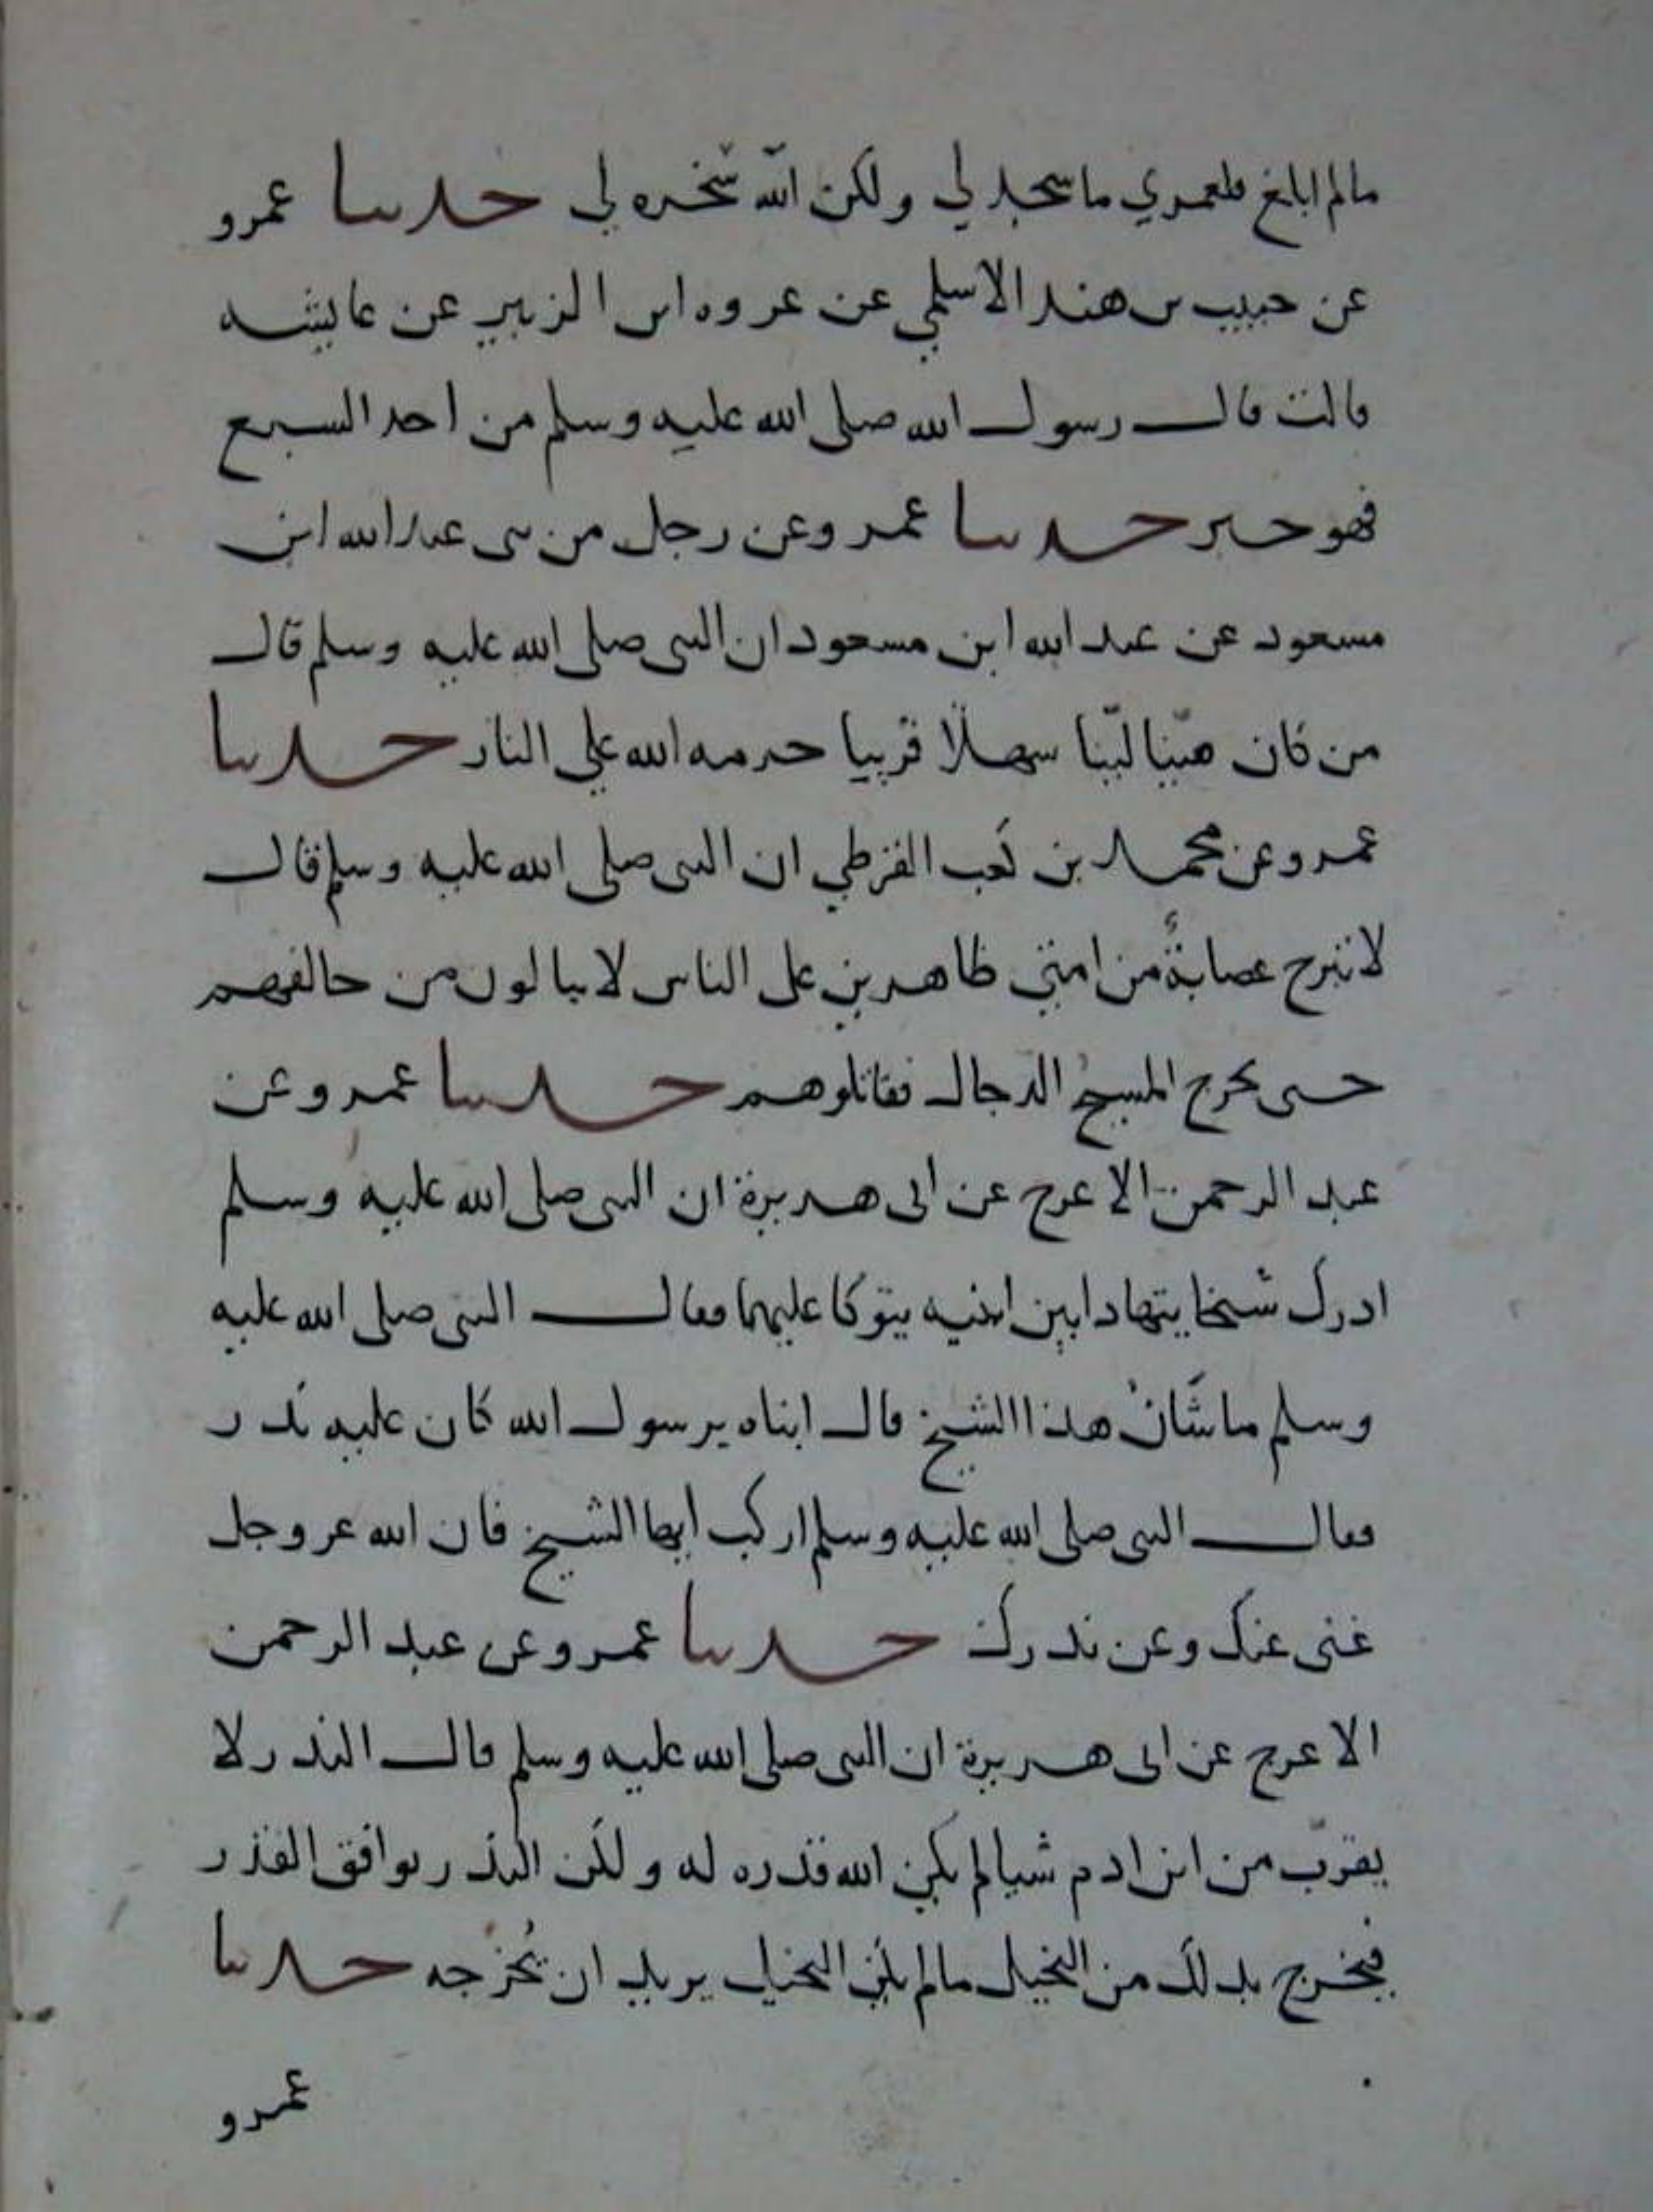 مالم ابلغ فلعمري ما سجد لي ولكن الله سخره لي حدثنا عمرو
عن حبيب بن هند الاسلمي عن عروه ابن الزبير عن عايشه
قالت قال رسول الله صلى الله عليه وسلم من اخذ السبع
فهو حبر حدثنا عمرو عن رجل من بنى عبد الله ابن
مسعود عن عبد الله ابن مسعود ان النبى صلى الله عليه وسلم قال
من كان هيّنا ليّنا سهلًا قريبا حرمه الله على النار حدثنا
عمرو عن محمد بن كعب القرظي ان النبى صلى الله عليه وسلم قال
لا تبرح عصابةٌ من امتي ظاهرين على الناس لا يبالون من خالفهم
حتى يخرج المسيح الدجال فقاتلوهم حدثنا عمرو عن
عبد الرحمن الاعرج عن ابى هريرة ان النبى صلى الله عليه وسلم
ادرك شيخا يتهادا بين ابنيه يتوكا عليهما فقال النبى صلى الله عليه
وسلم ما شَانُ هذا الشيخ قال ابناه يرسول الله كان عليه نَذر
فقال النبى صلى الله عليه وسلم اركب ايها الشيخ فان الله عز وجل
غنى عنك وعن نذرك حدثنا عمرو عن عبد الرحمن
الاعرج عن ابى هريرة ان النبى صلى الله عليه وسلم قال النذر لا
يقرّب من ابن ادم شيا لم يكن الله قدره له ولكن النذر يوافق القدر
فيخرج بذلك من البخيل مالم يكن البخيل يريد ان يُخرجه حدثنا
عمرو